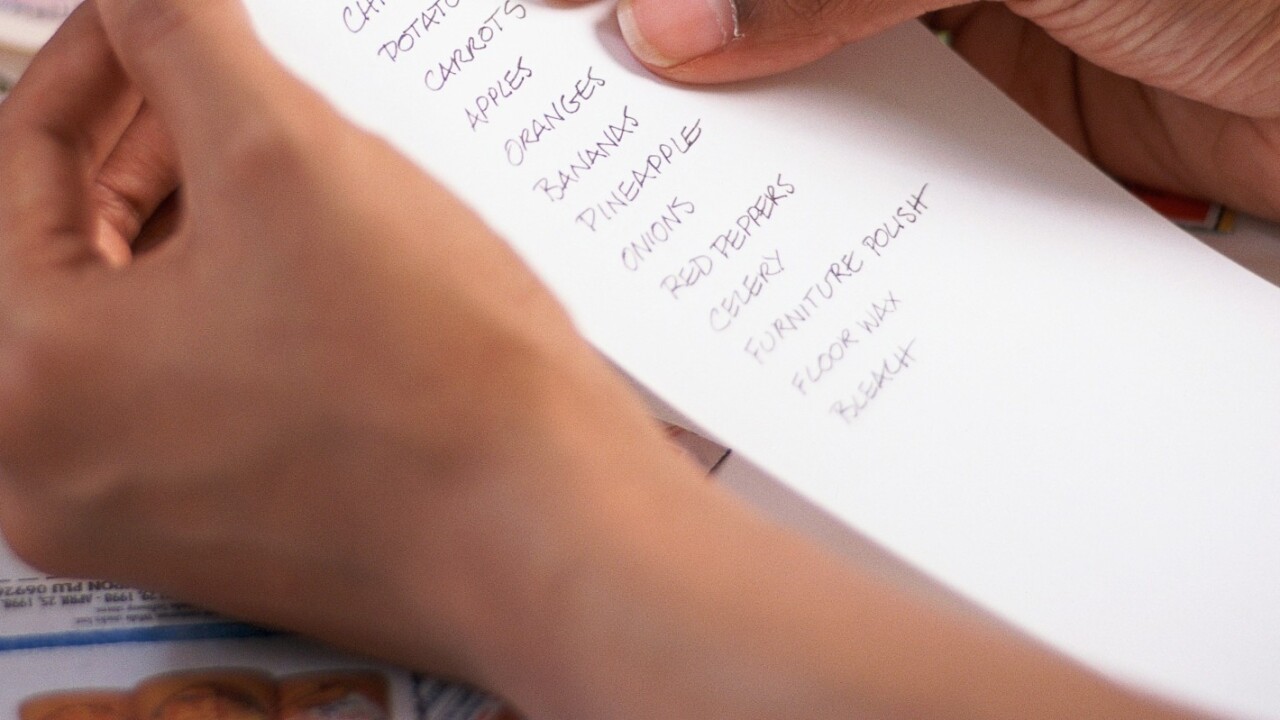 CARROTS
APPLES
ORANGES
BANANAS
PINEAPPLE
ONIONS
RED PEPPERS
CELERY
FURNITURE POLISH
FLOOR WAX
BLEACH
APRIL 25, 1998